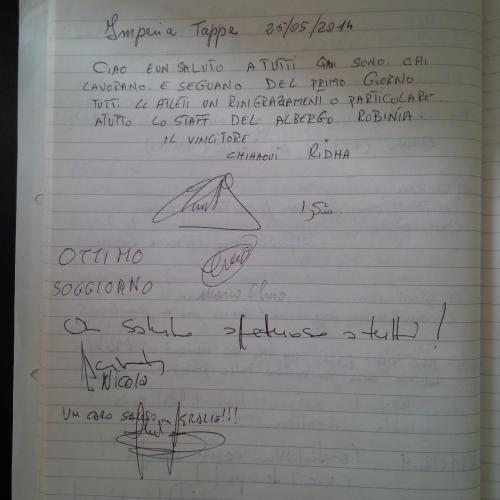 Imperia Tappe 25/05/2014
CIAO E UN SALUTO A TUTTI SONO CHI
LAVORANO E SEGUANO DEL PRIMO GIORNO
TUTTI LE ATLETI UN RINGRAZAMENTI O PARTICOLARE
ATUTTO LO STAFF DEL ALBERGO ROBINIA
IL VINCITORE
CHIHAOUI RIDHA
شكرا
OTTIMO
SOGGIORNO
Mario Olmo
Un saluto afetuoso a tutti!
NICOLA
UN CARO SALUTO GRAZIE!!!